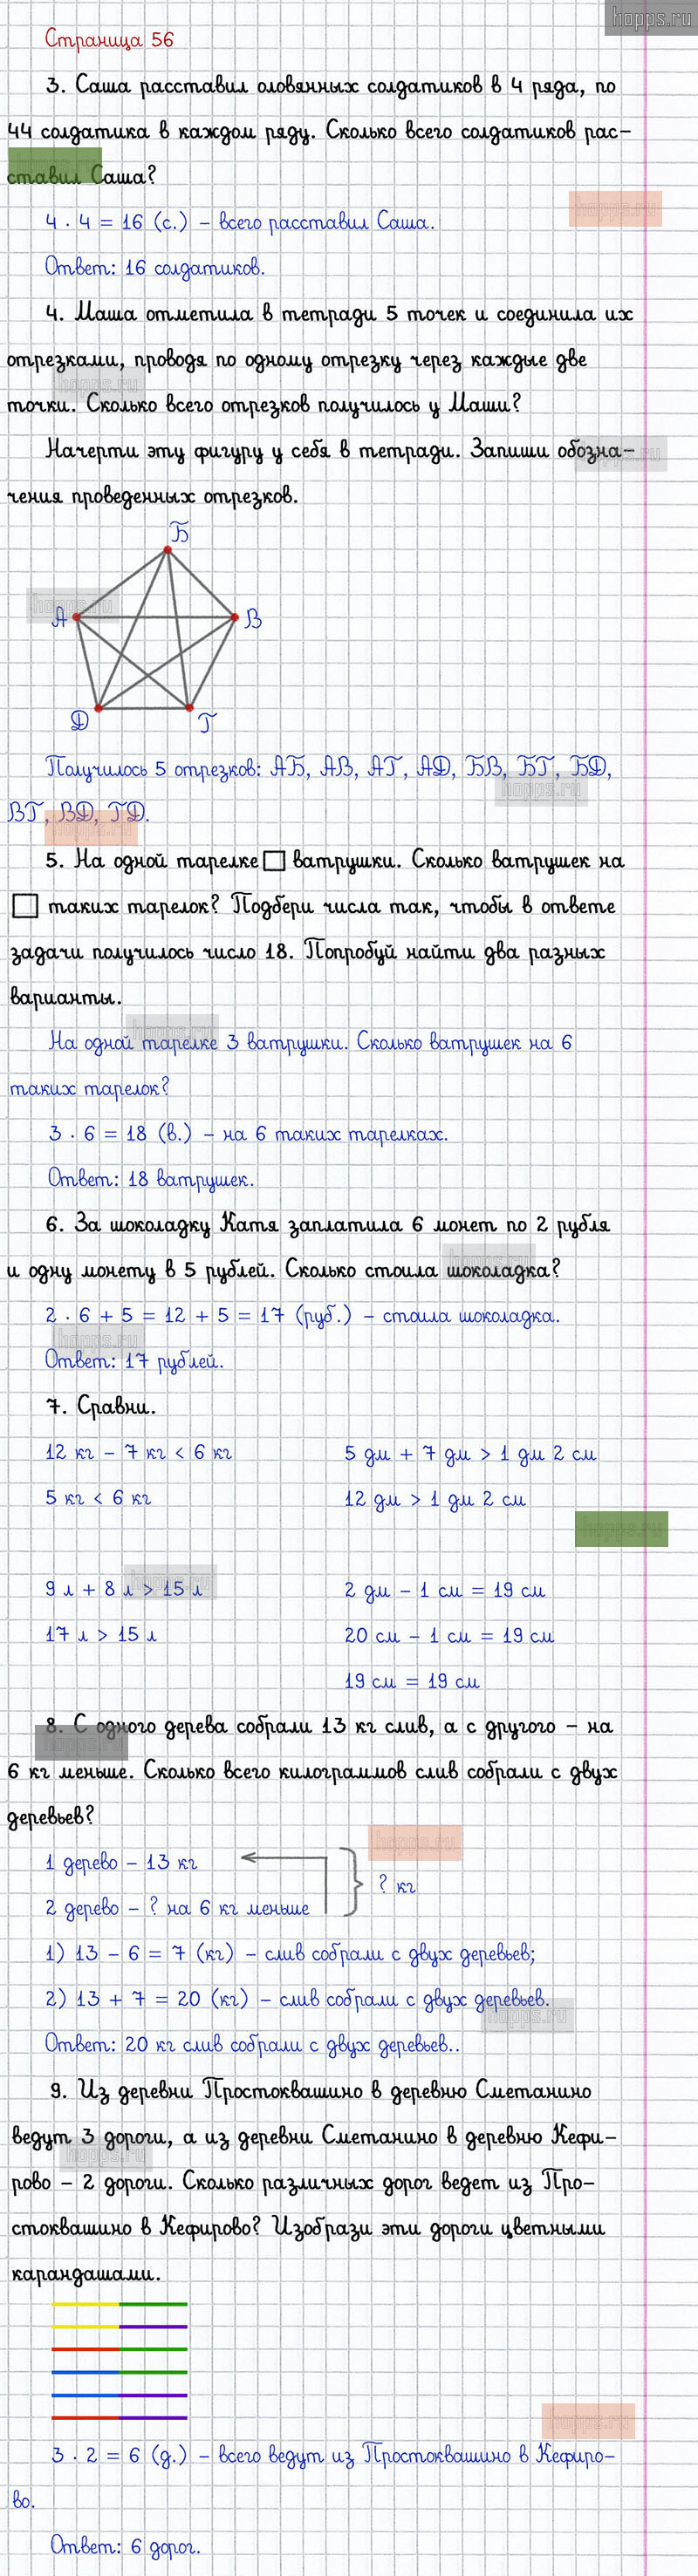 hopps.ru
Страница 56
3. Саша расставил оловянных солдатиков в 4 ряда, по
44 солдатика в каждом ряду. Сколько всего солдатиков рас-
ставил Саша?
hopps.ru
4 · 4 = 16 (с.) – всего расставил Саша.
Ответ: 16 солдатиков.
4. Маша отметила в тетради 5 точек и соединила их
отрезками, проводя по одному отрезку через каждые две
hopps.ru
точки. Сколько всего отрезков получилось у Маши?
Начерти эту фигуру у себя в тетради. Запиши обозна-
hopps.ru
чения проведенных отрезков.
Б
hopps.ru
А
В
Д
Г
Получилось 5 отрезков: АБ, АВ, АГ, АД, БВ, БГ, БД,
hopps.ru
ВГ, ВД, ГД.
hopps.ru
5. На одной тарелке □ ватрушки. Сколько ватрушек на
□ таких тарелок? Подбери числа так, чтобы в ответе
задачи получилось число 18. Попробуй найти два разных
варианты.
hopps.ru
На одной тарелке 3 ватрушки. Сколько ватрушек на 6
таких тарелок?
3 · 6 = 18 (в.) – на 6 таких тарелках.
Ответ: 18 ватрушек.
6. За шоколадку Катя заплатила 6 монет по 2 рубля
и одну монету в 5 рублей. Сколько стоила шоколадка?
hopps.ru
2 · 6 + 5 = 12 + 5 = 17 (руб.) – стоила шоколадка.
hopps.ru
Ответ: 17 рублей.
7. Сравни.
12 кг – 7 кг < 6 кг
5 дм + 7 дм > 1 дм 2 см
5 кг < 6 кг
12 дм > 1 дм 2 см
hopps.ru
9 л + 8 л > 15 л
hopps.ru
2 дм – 1 см = 19 см
17 л > 15 л
20 см – 1 см = 19 см
19 см = 19 см
8. С одного дерева собрали 13 кг слив, а с другого – на
hopps.ru
6 кг меньше. Сколько всего килограммов слив собрали с двух
деревьев?
hopps.ru
1 дерево – 13 кг
? кг
2 дерево – ? на 6 кг меньше
1) 13 – 6 = 7 (кг) – слив собрали с двух деревьев;
2) 13 + 7 = 20 (кг) – слив собрали с двух деревьев.
hopps.ru
Ответ: 20 кг слив собрали с двух деревьев..
9. Из деревни Простоквашино в деревню Сметанино
ведут 3 дороги, а из деревни Сметанино в деревню Кефи-
hopps.ru
рово – 2 дороги. Сколько различных дорог ведет из Про-
стоквашино в Кефирово? Изобрази эти дороги цветными
карандашами.
hopps.ru
3 · 2 = 6 (д.) – всего ведут из Простоквашино в Кефиро-
во.
Ответ: 6 дорог.